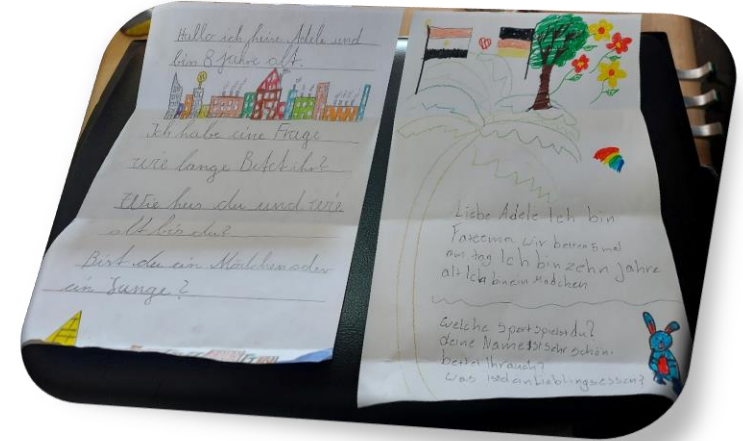 Hallo ich heiße Adele und
bin 8 Jahre alt.
Ich habe eine Frage
wie lange Betet ihr?
Wie heis du und wie
alt bis du?
Bist du ein Mädchen oder
ein Junge?
Liebe Adele Ich bin
Wir beten 5 mal
am tag Ich bin zehn Jahre
alt Ich bin ein Mädchen
welche Sport spielst du?
deine Name ist sehr schön.
beten Ihr auch?
was ist dein Lieblingsessen?